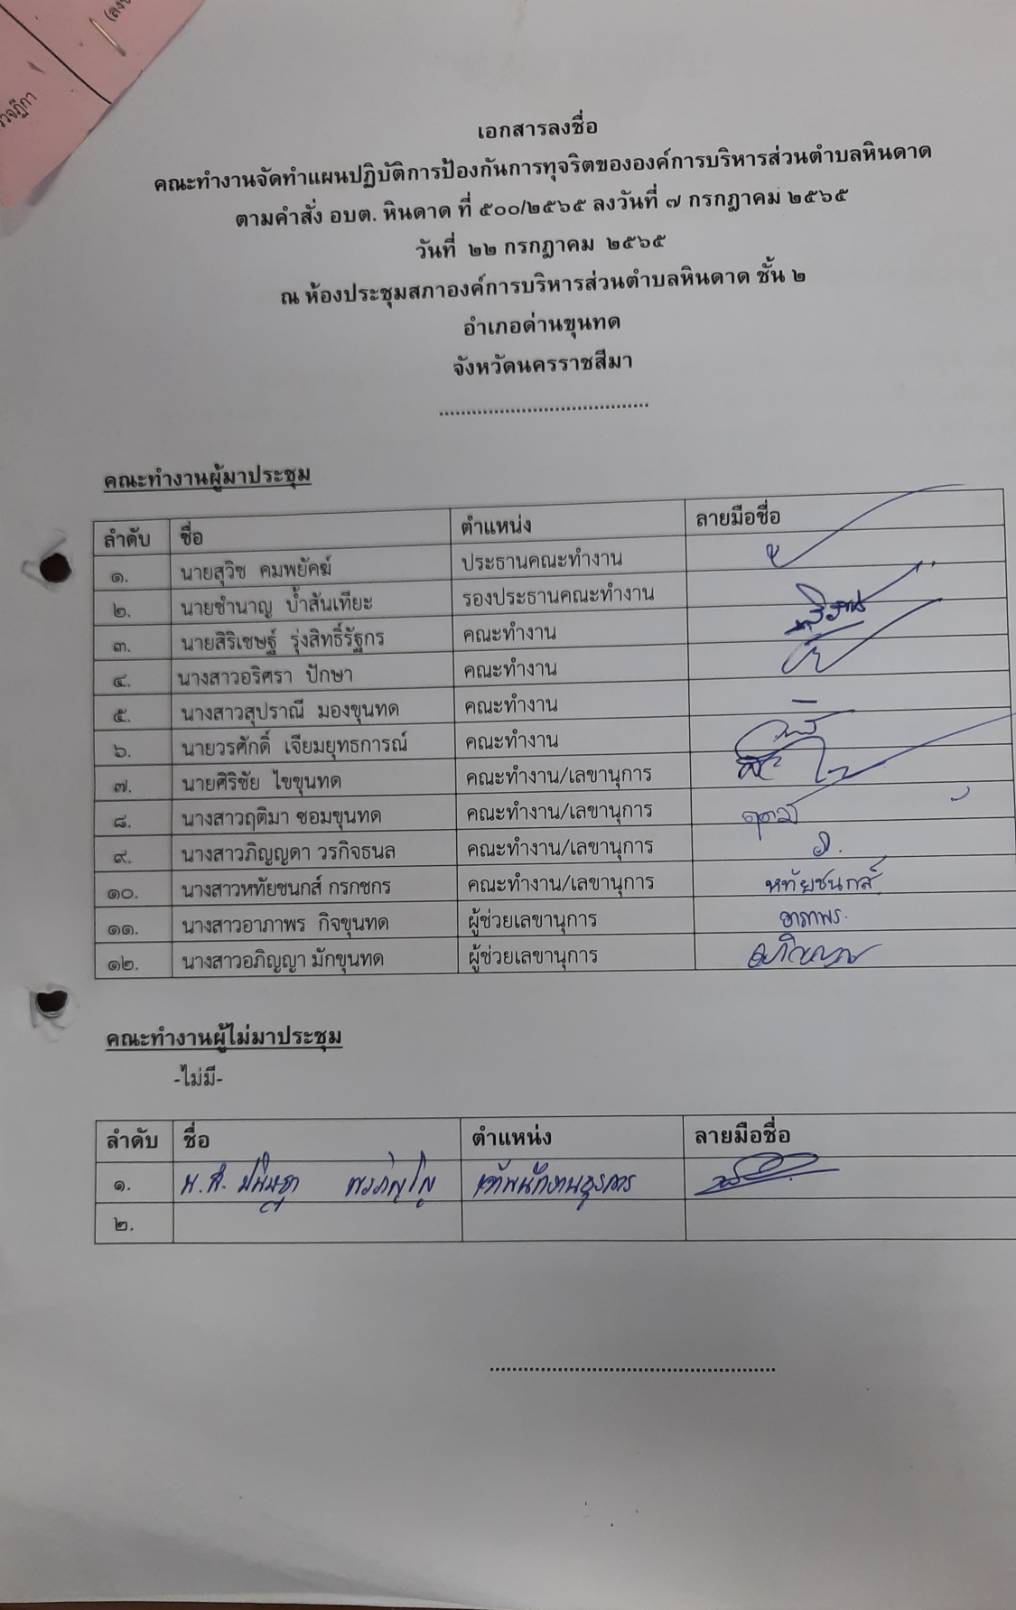 (ลงช
วจฎีกา
เอกสารลงชื่อ
คณะทำงานจัดทำแผนปฏิบัติการป้องกันการทุจริตขององค์การบริหารส่วนตำบลหินดาด
ตามคำสั่ง อบต. หินดาด ที่ ๕๐๐/๒๕๖๕ ลงวันที่ ๗ กรกฎาคม ๒๕๖๕
วันที่ ๒๒ กรกฎาคม ๒๕๖๕
ณ ห้องประชุมสภาองค์การบริหารส่วนตำบลหินดาด ชั้น ๒
อำเภอด่านขุนทด
จังหวัดนครราชสีมา
คณะทำงานผู้มาประชุม
ลำดับ ชื่อ ตำแหน่ง ลายมือชื่อ
๑. นายสุวิช คมพยัคฆ์ ประธานคณะทำงาน
๒. นายชำนาญ บ้ำสันเทียะ รองประธานคณะทำงาน
๓. นายสิริเชษฐ์ รุ่งสิทธิ์รัฐกร คณะทำงาน
๔. นางสาวอริศรา ปักษา คณะทำงาน
๕. นางสาวสุปราณี มองขุนทด คณะทำงาน -
๖. นายวรศักดิ์ เจียมยุทธการณ์ คณะทำงาน
๗. นายศิริชัย ไขขุนทด คณะทำงาน/เลขานุการ
๘. นางสาวฤติมา ชอมขุนทด คณะทำงาน/เลขานุการ
๙. นางสาวภิญญดา วรกิจธนล คณะทำงาน/เลขานุการ
๑๐. นางสาวหทัยชนกส์ กรกชกร คณะทำงาน/เลขานุการ หทัยชนกส์
๑๑. นางสาวอาภาพร กิจขุนทด ผู้ช่วยเลขานุการ อาภาพร
๑๒. นางสาวอภิญญา มักขุนทด ผู้ช่วยเลขานุการ
คณะทำงานผู้ไม่มาประชุม
-ไม่มี-
ลำดับ ชื่อ ตำแหน่ง ลายมือชื่อ
๑. น.ส. เจ้าพนักงานธุรการ
๒.